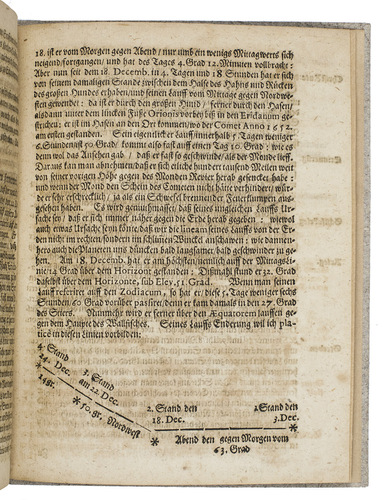 18. ist er vom Morgen gegen Abend / nur umb ein wenigs Mittagwerts sich
neigend / fortgangen / und hat des Tages 4. Grad 12. Minuten vollbracht:
Aber nun seit dem 18. Decemb. in 4. Tagen und 18 Stunden hat er sich
von seinem damaligen Stande zwischen dem Halse des Hahns und Rücken
des großen Hundes erhaben / und seinen Lauff vom Mittage gegen Nordwe-
sten gewendet: da ist er durch den großen Hund / ferner durch den Hasen/
als dann unter dem lincken Fusse Orionis vorbey biß in den Eridanum ge-
strichen: er ist im Hasen an den Ort kommen / wo der Comet Anno 1652.
am ersten gestanden. Sein eigenlicher Lauff / innerhalb 5 Tagen weniger
6. Stunden ist 50 Grad / komt also fast auff einen Tag 10. Grad: wie es
denn wol das Ansehen gab / daß er fast so geschwinde / als der Monde lieff.
Daraus kan man abnehmen / daß er sich etliche hundert tausend Meilen weit
von seiner vorigen Höhe gegen des Monden Revier herab gesencket habe:
und wenn der Mond den Schein des Cometen nicht hätte verhindert / wür-
de er sehr erschrecklich / ja als ein Schwefel brennender Feuerklumpen aus-
gesehen haben. Es wird gemuhtmasset / daß seines ungleichen Lauffs Ur-
sache sey / daß er sich immer näher gegen die Erde herab gegeben: wiewol
auch etwas Ursache seyn könte / daß wir die lineam seines Lauffs von der Er-
den nicht im rechten / sondern im schlimen Winckel anschauen / wie dannen-
hero auch die Planeten uns düncken bald langsamer / bald geschwinder zu ge-
hen. Am 18. Decemb. hat er am höchsten / nemlich auff der Mittagsli-
nie 14 Grad über dem Horizont gestanden: Dißmahl stund er 32. Grad
daselbst über dem Horizonte, sub Elev. 51 Grad. Wenn man seinen
Lauff referiret auff den Zodiacum, so hat er / diese 5. Tage weniger sechs
Stunden / 60 Grad vorüber passiret / denn er kam damals in den 27. Grad
des Stiers. Nunmehr wird er ferner über den Æquatorem lauffen ge-
gen dem Haupte des Wallfisches. Seines Lauffs Enderung wil ich pla-
ticè in diesen Linien vorbilden:
4. Stand
24. Dec.
3. Stand
am 22 Dec.
14gr.
50. gr. Nordwest
2. Stand den
18. Dec.
1 Stand den
3. Dec.
Abend den gegen Morgen vom
63. Grad